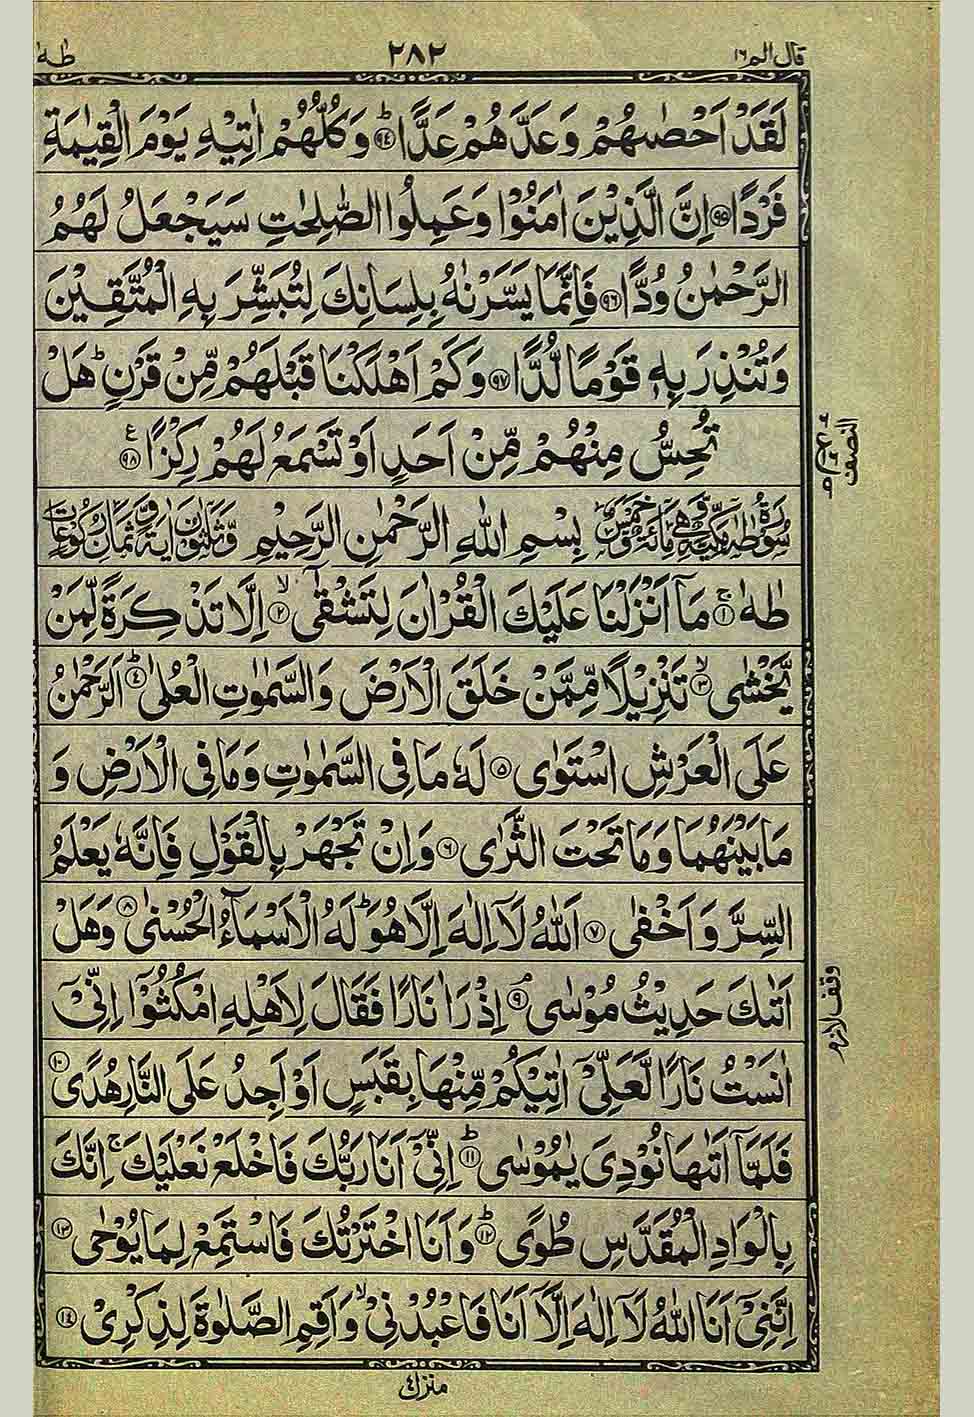 قال الم ١٦
٢٨٢
طٰهٰ
لَقَدْ اَحْصٰىهُمْ وَعَدَّهُمْ عَدًّا ؕ﴿۹۴﴾ وَكُلُّهُمْ اٰتِيْهِ يَوْمَ الْقِيٰمَةِ
فَرْدًا ﴿۹۵﴾ اِنَّ الَّذِيْنَ اٰمَنُوْا وَعَمِلُوا الصّٰلِحٰتِ سَيَجْعَلُ لَهُمُ
الرَّحْمٰنُ وُدًّا ﴿۹۶﴾ فَاِنَّمَا يَسَّرْنٰهُ بِلِسَانِكَ لِتُبَشِّرَ بِهِ الْمُتَّقِيْنَ
وَتُنْذِرَ بِهٖ قَوْمًا لُّدًّا ﴿۹۷﴾ وَكَمْ اَهْلَكْنَا قَبْلَهُمْ مِّنْ قَرْنٍ ؕ هَلْ
تُحِسُّ مِنْهُمْ مِّنْ اَحَدٍ اَوْ تَسْمَعُ لَهُمْ رِكْزًا ﴿۹۸﴾ ع
النصف
سُوْرَةُ طٰهٰ مَكِّيَّةٌ وَّهِيَ مِائَةٌ وَّخَمْسٌ بِسْمِ اللهِ الرَّحْمٰنِ الرَّحِيْمِ وَّثَلٰثُوْنَ اٰيَةً وَّثَمَانُ رُكُوْعَاتٍ
طٰهٰ ۚ﴿۱﴾ مَاۤ اَنْزَلْنَا عَلَيْكَ الْقُرْاٰنَ لِتَشْقٰۤى ۙ﴿۲﴾ اِلَّا تَذْكِرَةً لِّمَنْ
يَّخْشٰى ۙ﴿۳﴾ تَنْزِيْلًا مِّمَّنْ خَلَقَ الْاَرْضَ وَالسَّمٰوٰتِ الْعُلٰى ؕ﴿۴﴾ اَلرَّحْمٰنُ
عَلَى الْعَرْشِ اسْتَوٰى ﴿۵﴾ لَهٗ مَا فِى السَّمٰوٰتِ وَمَا فِى الْاَرْضِ وَ
مَا بَيْنَهُمَا وَمَا تَحْتَ الثَّرٰى ﴿۶﴾ وَاِنْ تَجْهَرْ بِالْقَوْلِ فَاِنَّهٗ يَعْلَمُ
السِّرَّ وَاَخْفٰى ﴿۷﴾ اَللهُ لَاۤ اِلٰهَ اِلَّا هُوَ ؕ لَهُ الْاَسْمَآءُ الْحُسْنٰى ﴿۸﴾ وَهَلْ
اَتٰىكَ حَدِيْثُ مُوْسٰى ۘ﴿۹﴾ اِذْ رَاٰ نَارًا فَقَالَ لِاَهْلِهِ امْكُثُوْۤا اِنِّىْۤ
وقف لازم
اٰنَسْتُ نَارًا لَّعَلِّىْۤ اٰتِيْكُمْ مِّنْهَا بِقَبَسٍ اَوْ اَجِدُ عَلَى النَّارِ هُدًى ﴿۱۰﴾
فَلَمَّاۤ اَتٰىهَا نُوْدِىَ يٰمُوْسٰى ؕ﴿۱۱﴾ اِنِّىْۤ اَنَا رَبُّكَ فَاخْلَعْ نَعْلَيْكَ ۚ اِنَّكَ
بِالْوَادِ الْمُقَدَّسِ طُوًى ؕ﴿۱۲﴾ وَاَنَا اخْتَرْتُكَ فَاسْتَمِعْ لِمَا يُوْحٰى ﴿۱۳﴾
اِنَّنِىْۤ اَنَا اللهُ لَاۤ اِلٰهَ اِلَّاۤ اَنَا فَاعْبُدْنِىْ ۙ وَاَقِمِ الصَّلٰوةَ لِذِكْرِىْ ﴿۱۴﴾
منزل ٤